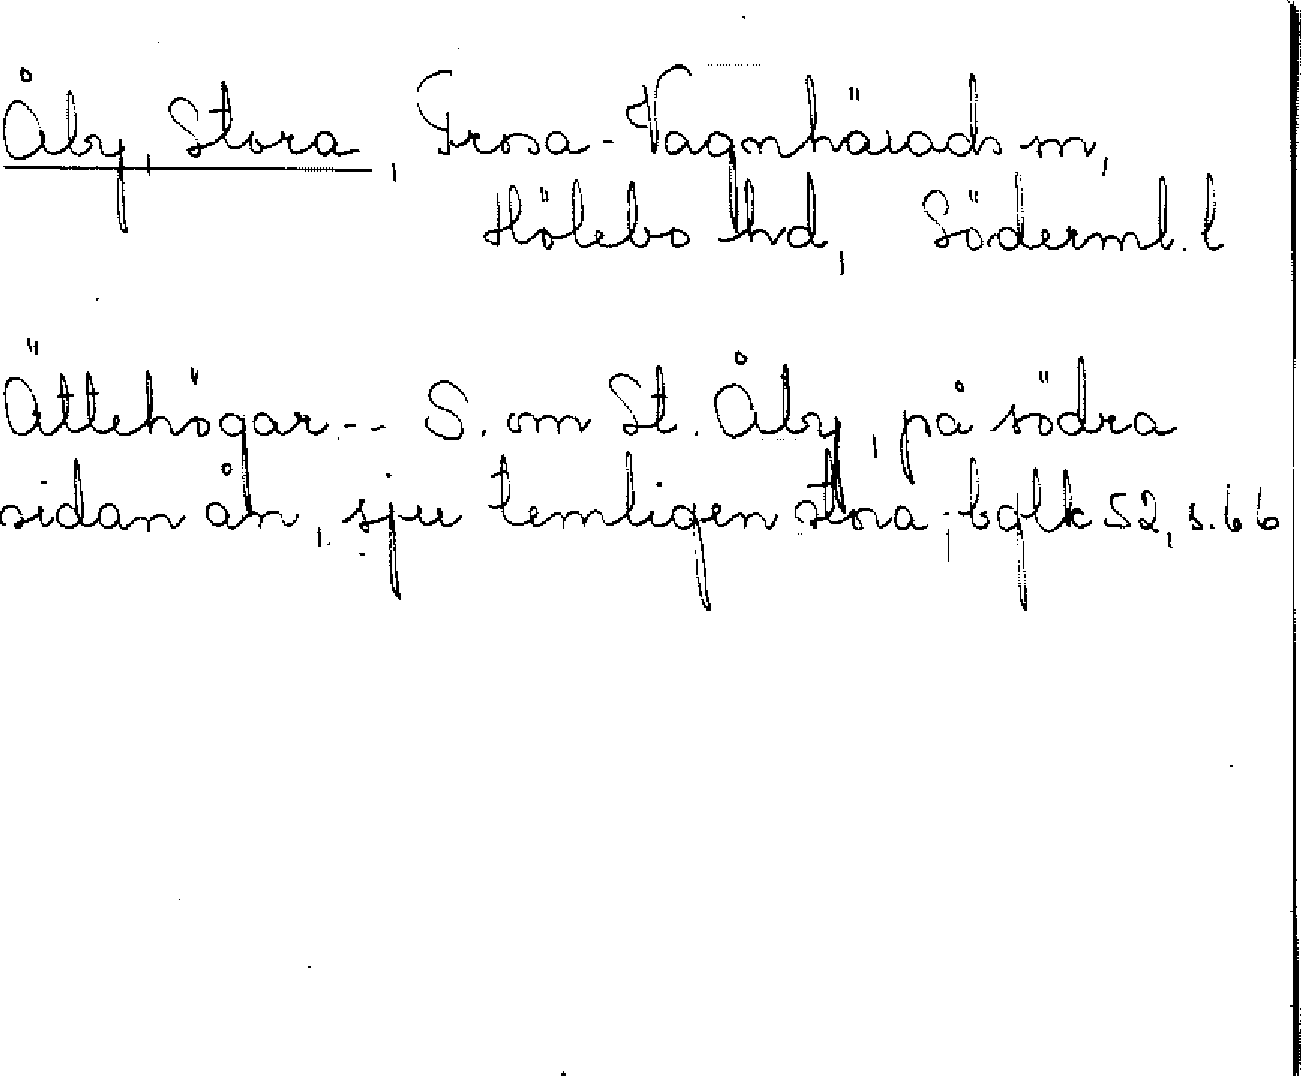 Åby, Stora, Trosa-Vagnhärads sn,
Hölebo hd, Söderml. l
Ättehögar -- S. om St. Åby, på södra
sidan ån, sju temligen stora; bglk 52, s. 66